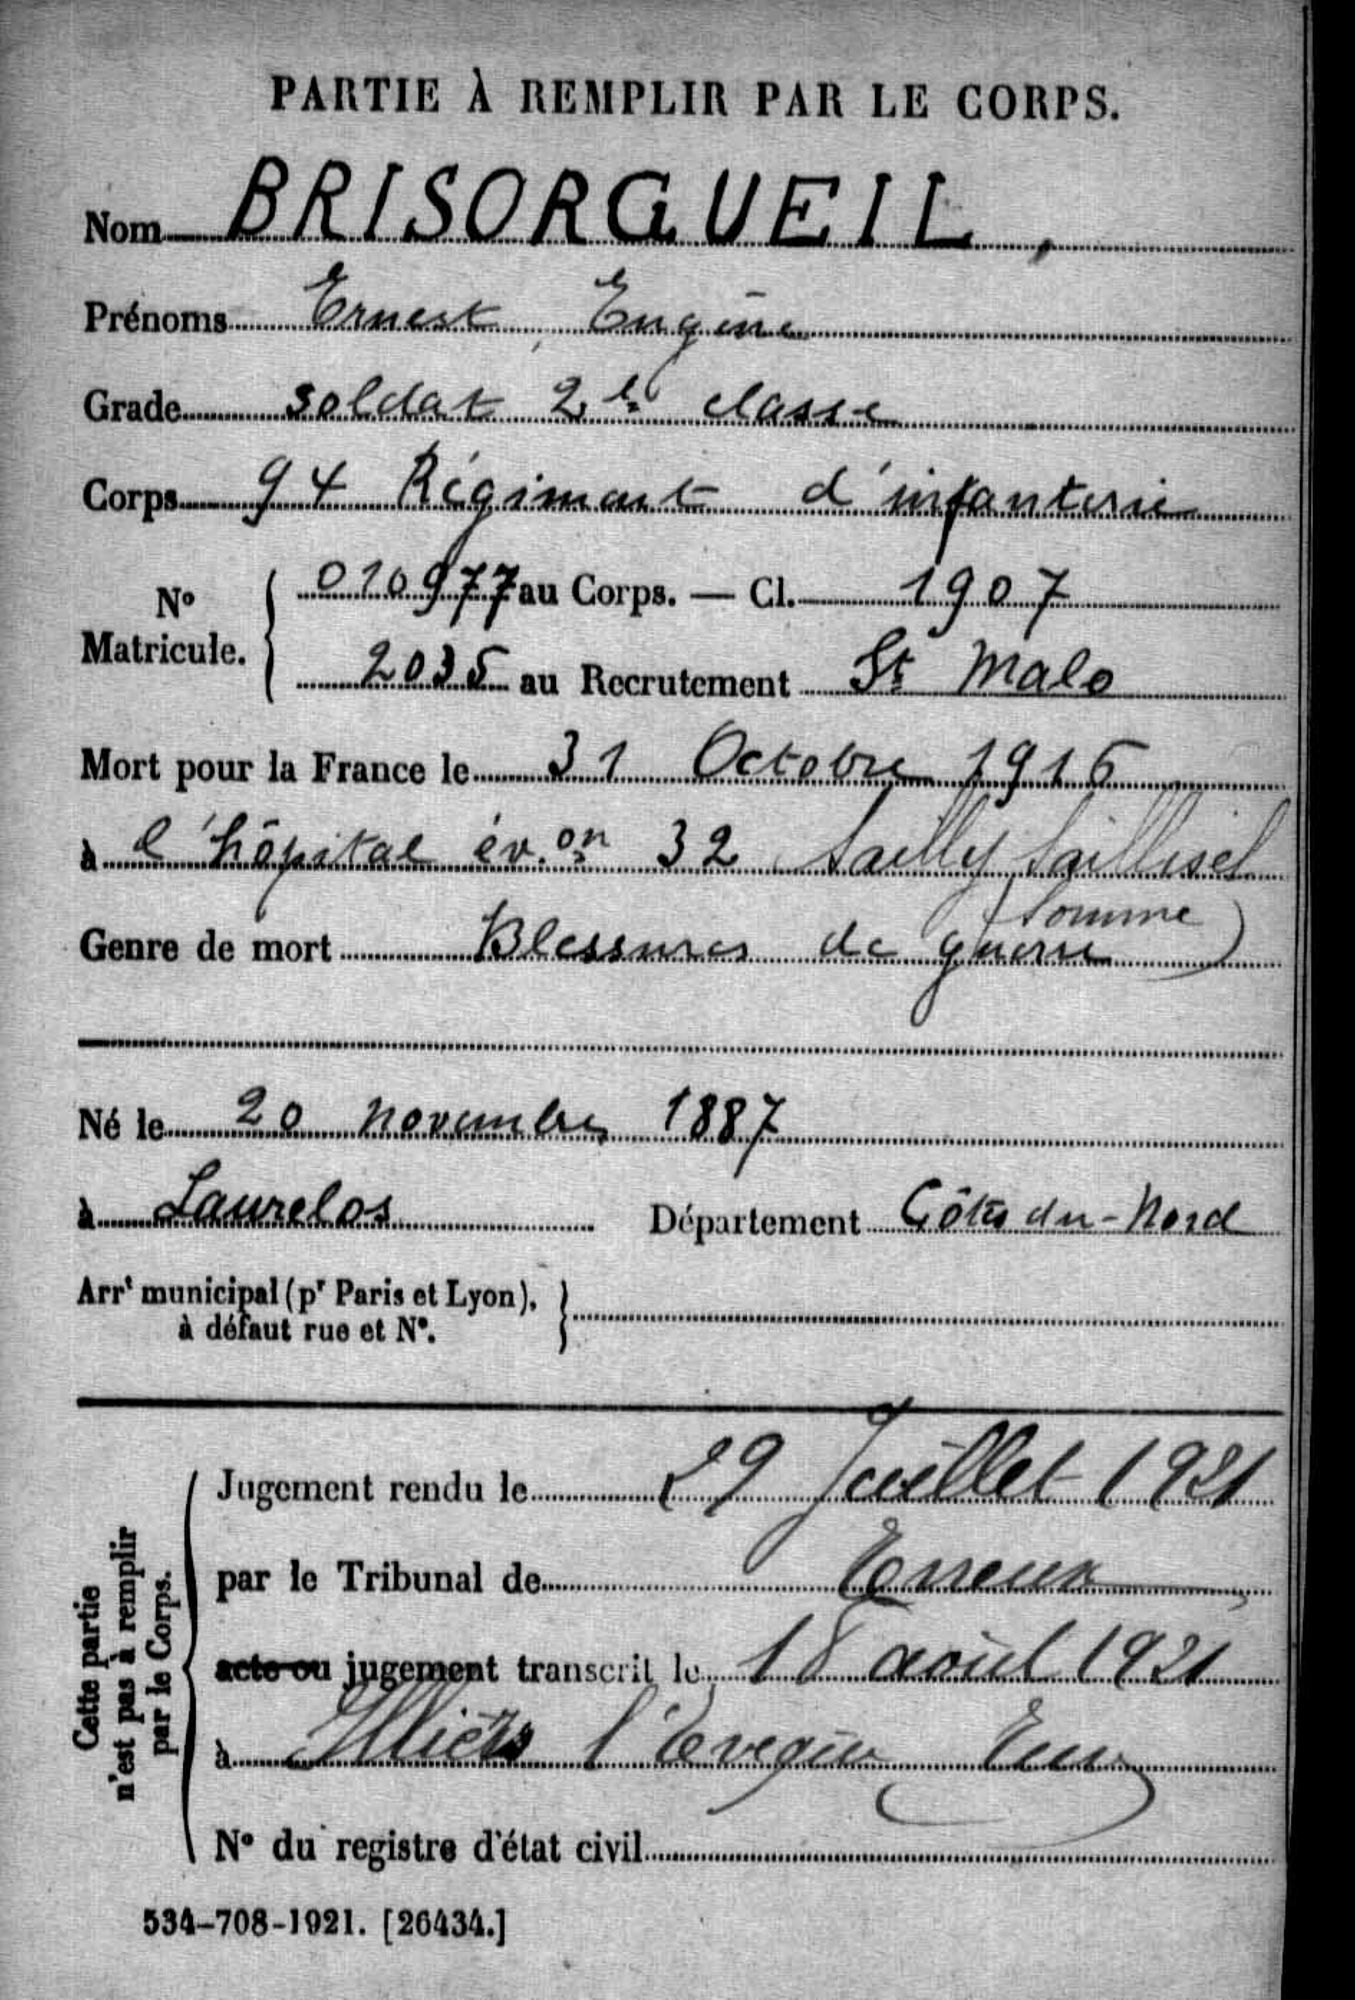 PARTIE À REMPLIR PAR LE CORPS.
Nom BRISORGUEIL,
Prénoms Ernest, Eugène
Grade soldat 2e classe
Corps 94 Régiment d'infanterie
No Matricule. 010977 au Corps. — Cl. 1907
2035 au Recrutement St Malo
Mort pour la France le 31 Octobre 1916
à l'hôpital év.on 32 Sailly Saillisel
(Somme)
Genre de mort Blessures de guerre
Né le 20 novembre 1887
à Laurelos Département Côtes du-Nord
Arrt municipal (pr Paris et Lyon),
à défaut rue et No.
Cette partie
n'est pas à remplir
par le Corps.
Jugement rendu le 29 Juillet 1921
par le Tribunal de Evreux
acte ou jugement transcrit le 18 août 1921
à Illiers l'Evêque Eure
No du registre d'état civil
534-708-1921. [26434.]